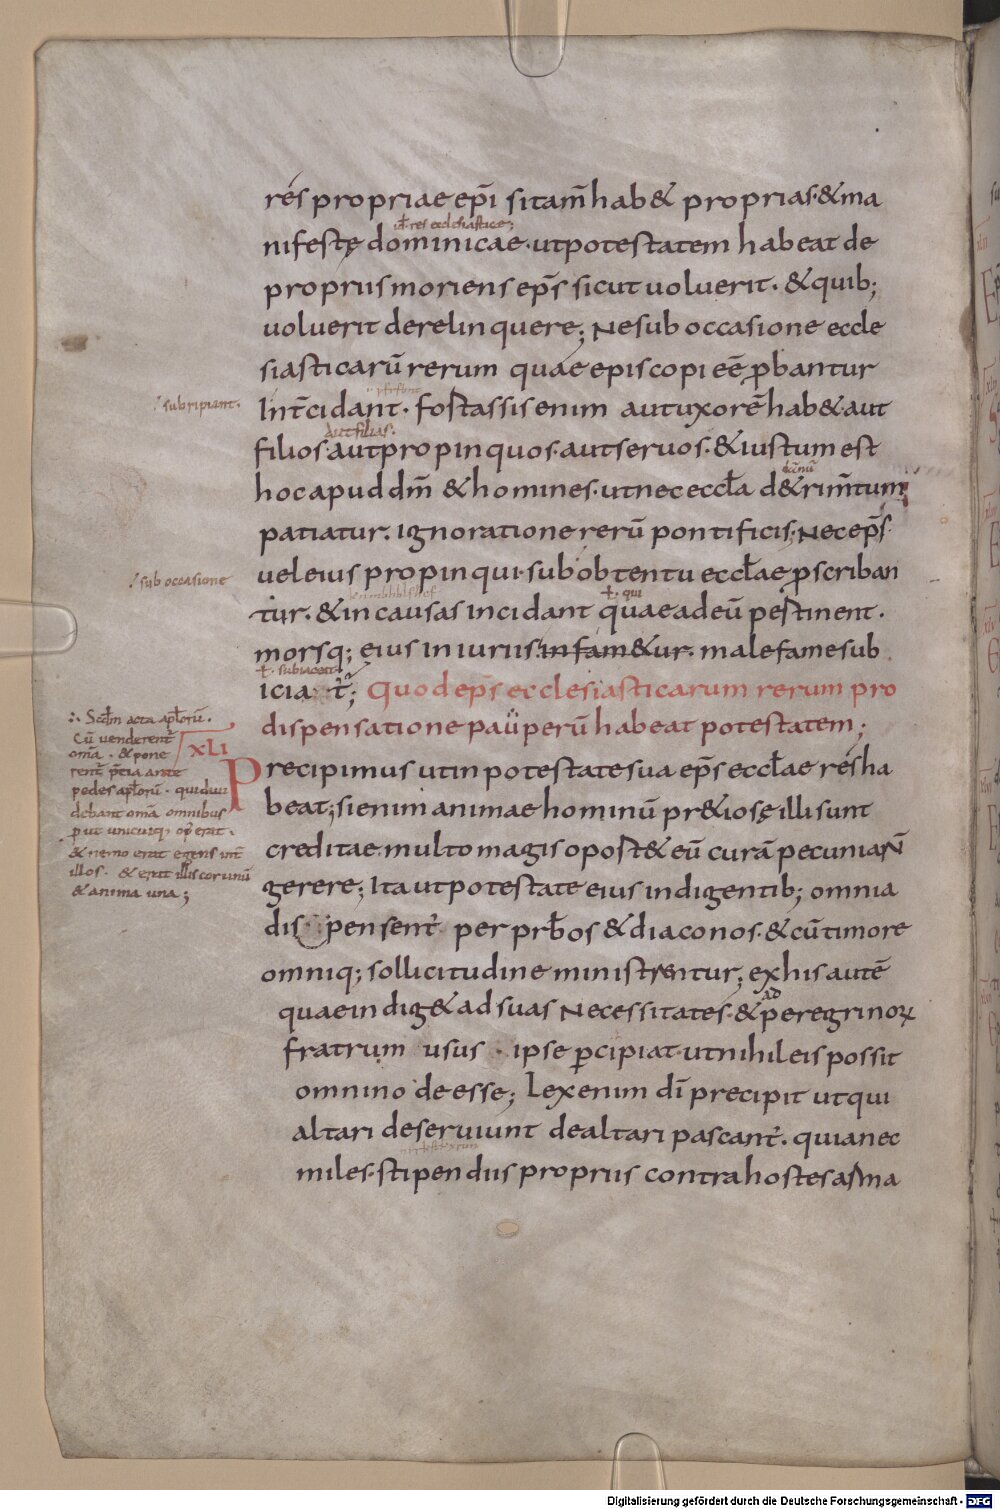 rés propriae ep̄i sitam̄ hab& proprias·&ma
ut̄ res ecclesiastice;
nifestę dominicae·ut potestatem habeat de
propriis moriens ep̄s sicut uoluerit·&quib;
uoluerit derelinquere; Ne sub occasione eccle
siasticarū rerum quae episcopi eē ꝓbantur
/ subripiant·
Int̄cidant· fortassis enim aut uxorē hab& aut
aut filias·
filios·aut propinquos·aut seruos·&iustum est
dānū
hoc apud dm̄ &homines·ut nec eccl̄a d&rim̄tum
patiatur· ignoratione rerū pontificis; Nec ep̄s
/ sub occasione
uel eius propinqui·sub obtentu eccl̄ae ꝓscriban
ł· qui
tur·&in causas incidant quae ad eū pertinent·
morsq; eius iniuriis infam&ur· malefame sub
ł· subiaceat
icia t̄; Quod ep̄s ecclesiasticarum rerum pro
dispensatione pauperū habeat potestatem;
XLI
Precipimus ut in potestate sua ep̄s eccl̄ae rés ha
beat; si enim animae hominū pr&iosę illi sunt
creditae·multo magis oport& eū curā pecuniaN̄
gerere; Ita ut potestate eius indigentib; omnia
dis pensent̄ per prb̄os &diaconos·&cū timore
omniq; sollicitudine ministrentur; ex his autē
quae indig& ad suas Necessitates·& ad peregrinoꝝ
fratrum usus · ipse ꝑcipiat·ut nihil eis possit
omnino deesse; Lex enim dī precipit ut qui
altari deseruiunt de altari pascant̄· quia nec
miles·stipendiis propriis contra hostes arma
∴ Scd̄m acta apl̄orū·
Cū uenderent̄
omā· &pone
rent̄ p̄tia ante
pedes apl̄orū· quidiui
debant omā omnibus
ꝓut unicuiq; op' erat·
&nemo erat egens int̄
illos· &erat illis cor unū
&anima una;
Digitalisierung gefördert durch die Deutsche Forschungsgemeinschaft - DFG